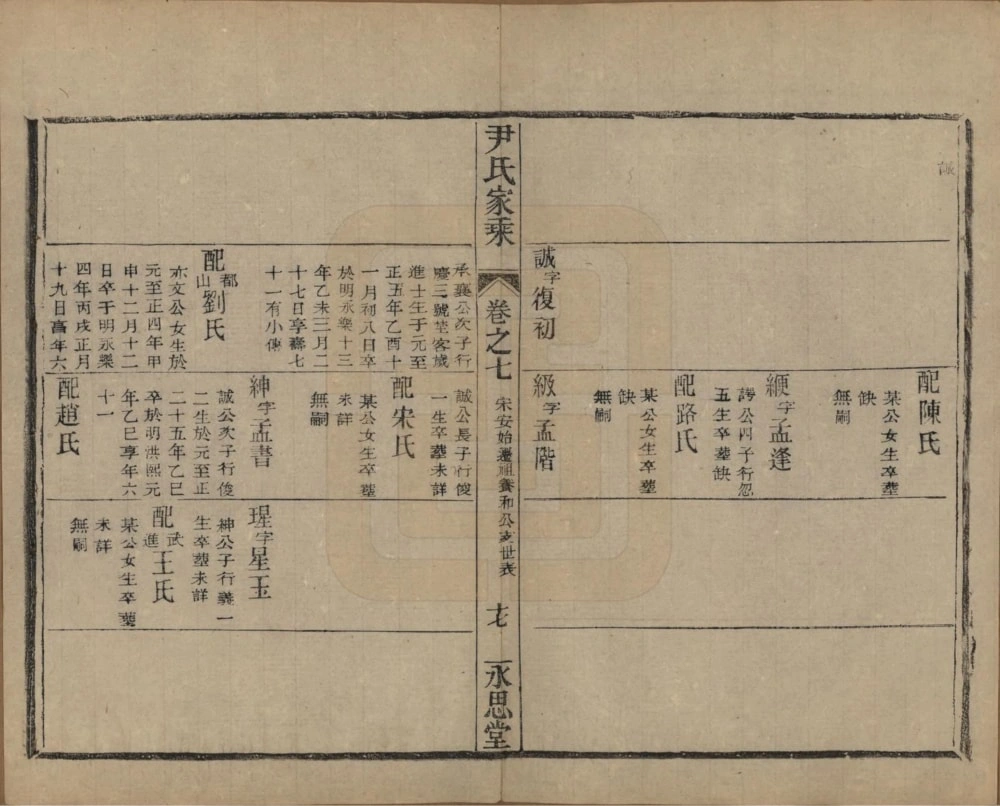 配陳氏
某公女生卒塟
缺
無嗣
緶字孟逢
諤公四子行忽
五生卒塟缺
配路氏
某公女生卒塟
缺
無嗣
誠字復初
級字孟階
尹氏家乘
卷之七
宋安始遷祖養和公支世表
十七
永思堂
承襄公次子行
慶三號莖客歲
進士生于元至
正五年乙酉十
一月初八日卒
於明永樂十三
年乙未三月二
十七日享壽七
十一有小傳
配都山劉氏
亦文公女生於
元至正四年甲
申十二月十二
日卒于明永樂
四年丙戌正月
十九日壽年六
誠公長子行俊
一生卒塟未詳
配宋氏
某公女生卒塟
未詳
無嗣
紳字孟書
誠公次子行俊
二生於元至正
二十五年乙巳
卒於明洪熙元
年乙巳享年六
十一
配趙氏
瑆字星玉
紳公子行義一
生卒塟未詳
配武進王氏
某公女生卒塟
未詳
無嗣